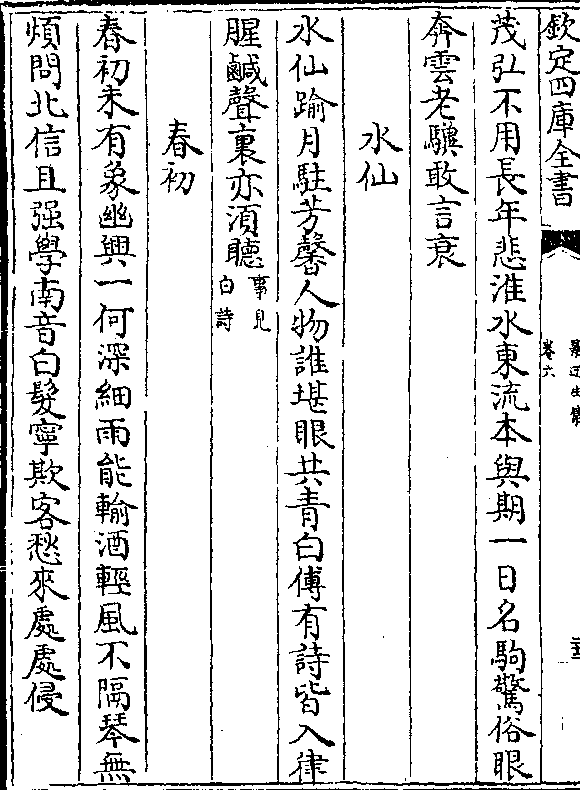 欽定四庫全書
卷六
茂弘不用長年悲淮水東流本與期一日名駒驚俗眼
奔雲老驥敢言衰
水仙
水仙踰月駐芳馨人物誰堪眼共青白傅有詩皆入律
腥鹹聲裏亦須聽事見白詩
春初
春初未有象幽興一何深細雨能輸酒輕風不隔琴無
煩問北信且强學南音白髮寧欺客愁來處處侵